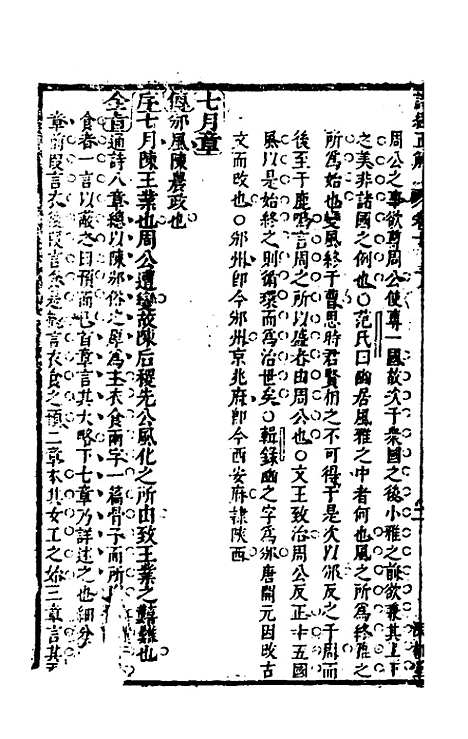 詩經正解 卷十
周公之事欲尊周公使專一國故次于眾國之後小雅之前欲兼其上下
之美非諸國之例也○范氏曰豳居風雅之中者何也風之所為終雅之
所為始也變風終于曹思時君賢伯之不可得于是次以邠反之于周而
後至于鹿鳴言周之所以盛者由周公也○文王致治周公反正十五國
風以是始終之則循環而為治世矣○輯錄豳之字為邠唐開元因改古
文而改也○邠州即今邠州京兆府即今西安府隸陝西
七月章
傳邠風陳農政也
序七月陳王業也周公遭變故陳后稷先公風化之所由致王業之艱難也
全旨通詩八章總以陳邠俗之厚為主衣食兩字一篇骨子而所
食者一言以蔽之曰預而已首章言其大略下七章乃詳述之也細分
章前段言衣後段言食總言衣食之預二章本其女工之始三章言其